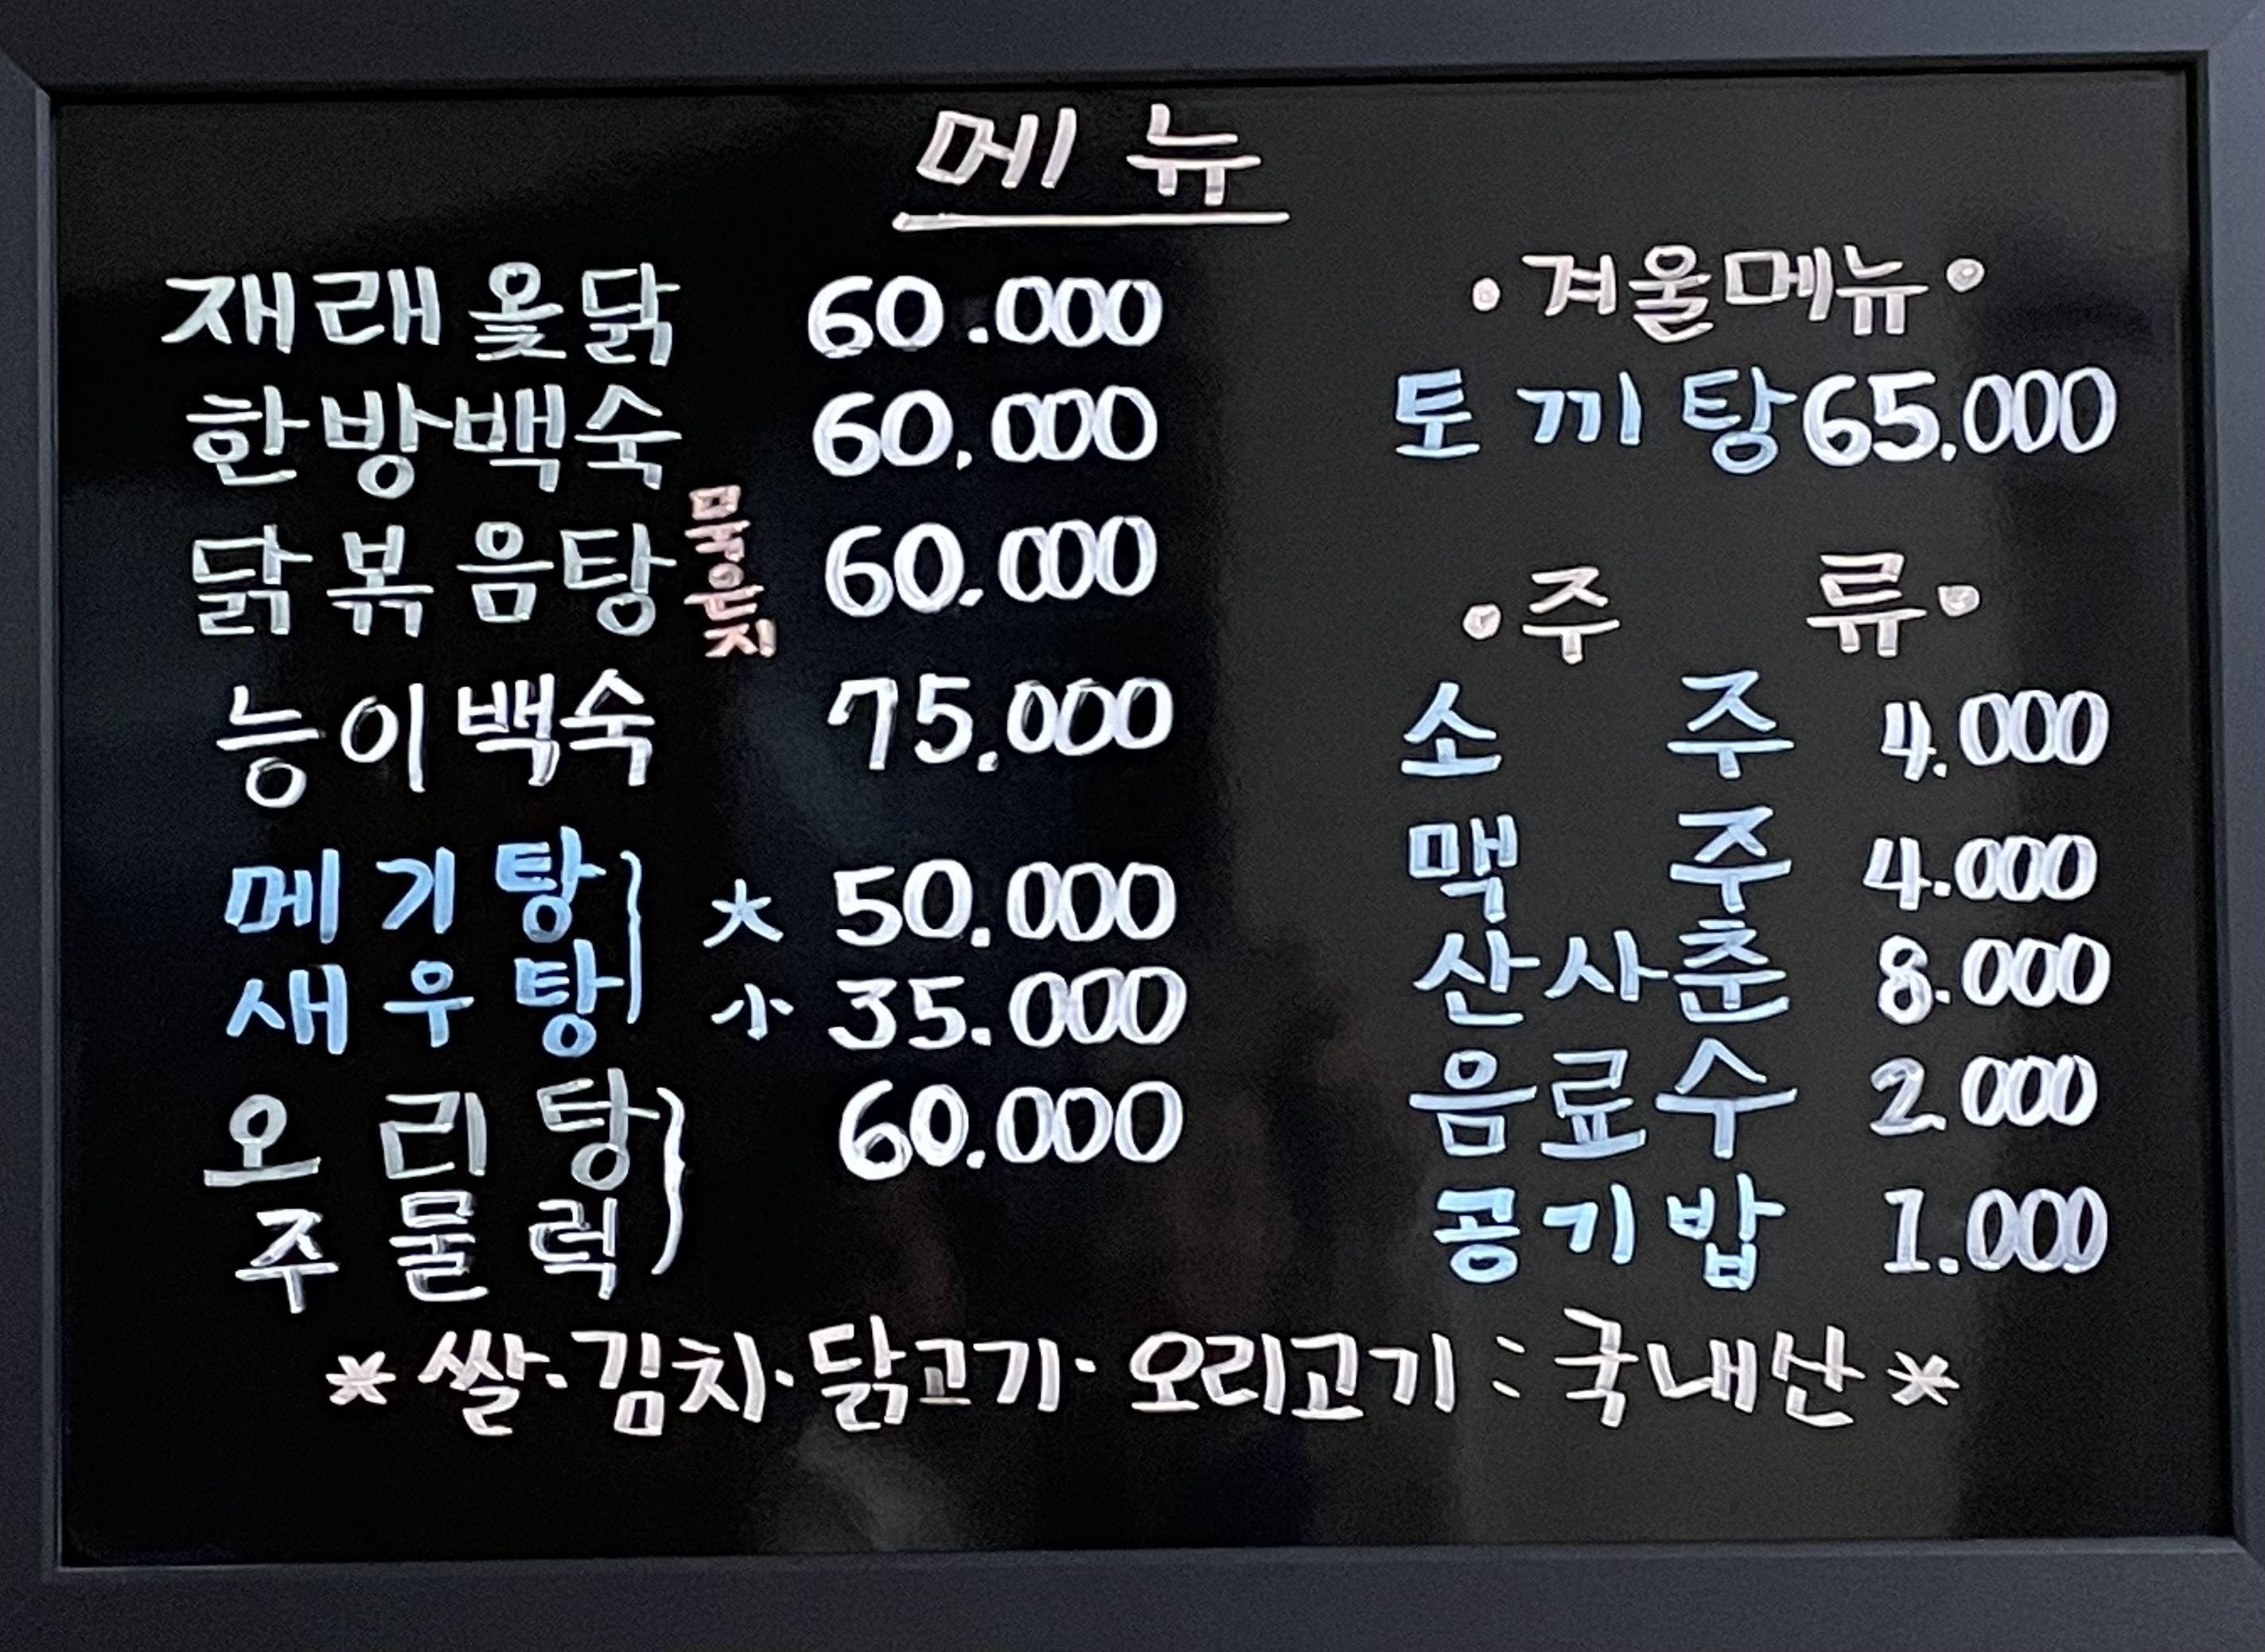 메뉴
재래옻닭 60.000
한방백숙 60.000
닭볶음탕 묵은지 60.000
능이백숙 75.000
메기탕 大 50.000
새우탕 小 35.000
오리탕 60.000
주물럭
•겨울메뉴•
토끼탕 65.000
•주 류•
소 주 4.000
맥 주 4.000
산사춘 8.000
음료수 2.000
공기밥 1.000
* 쌀·김치·닭고기·오리고기 : 국내산 *